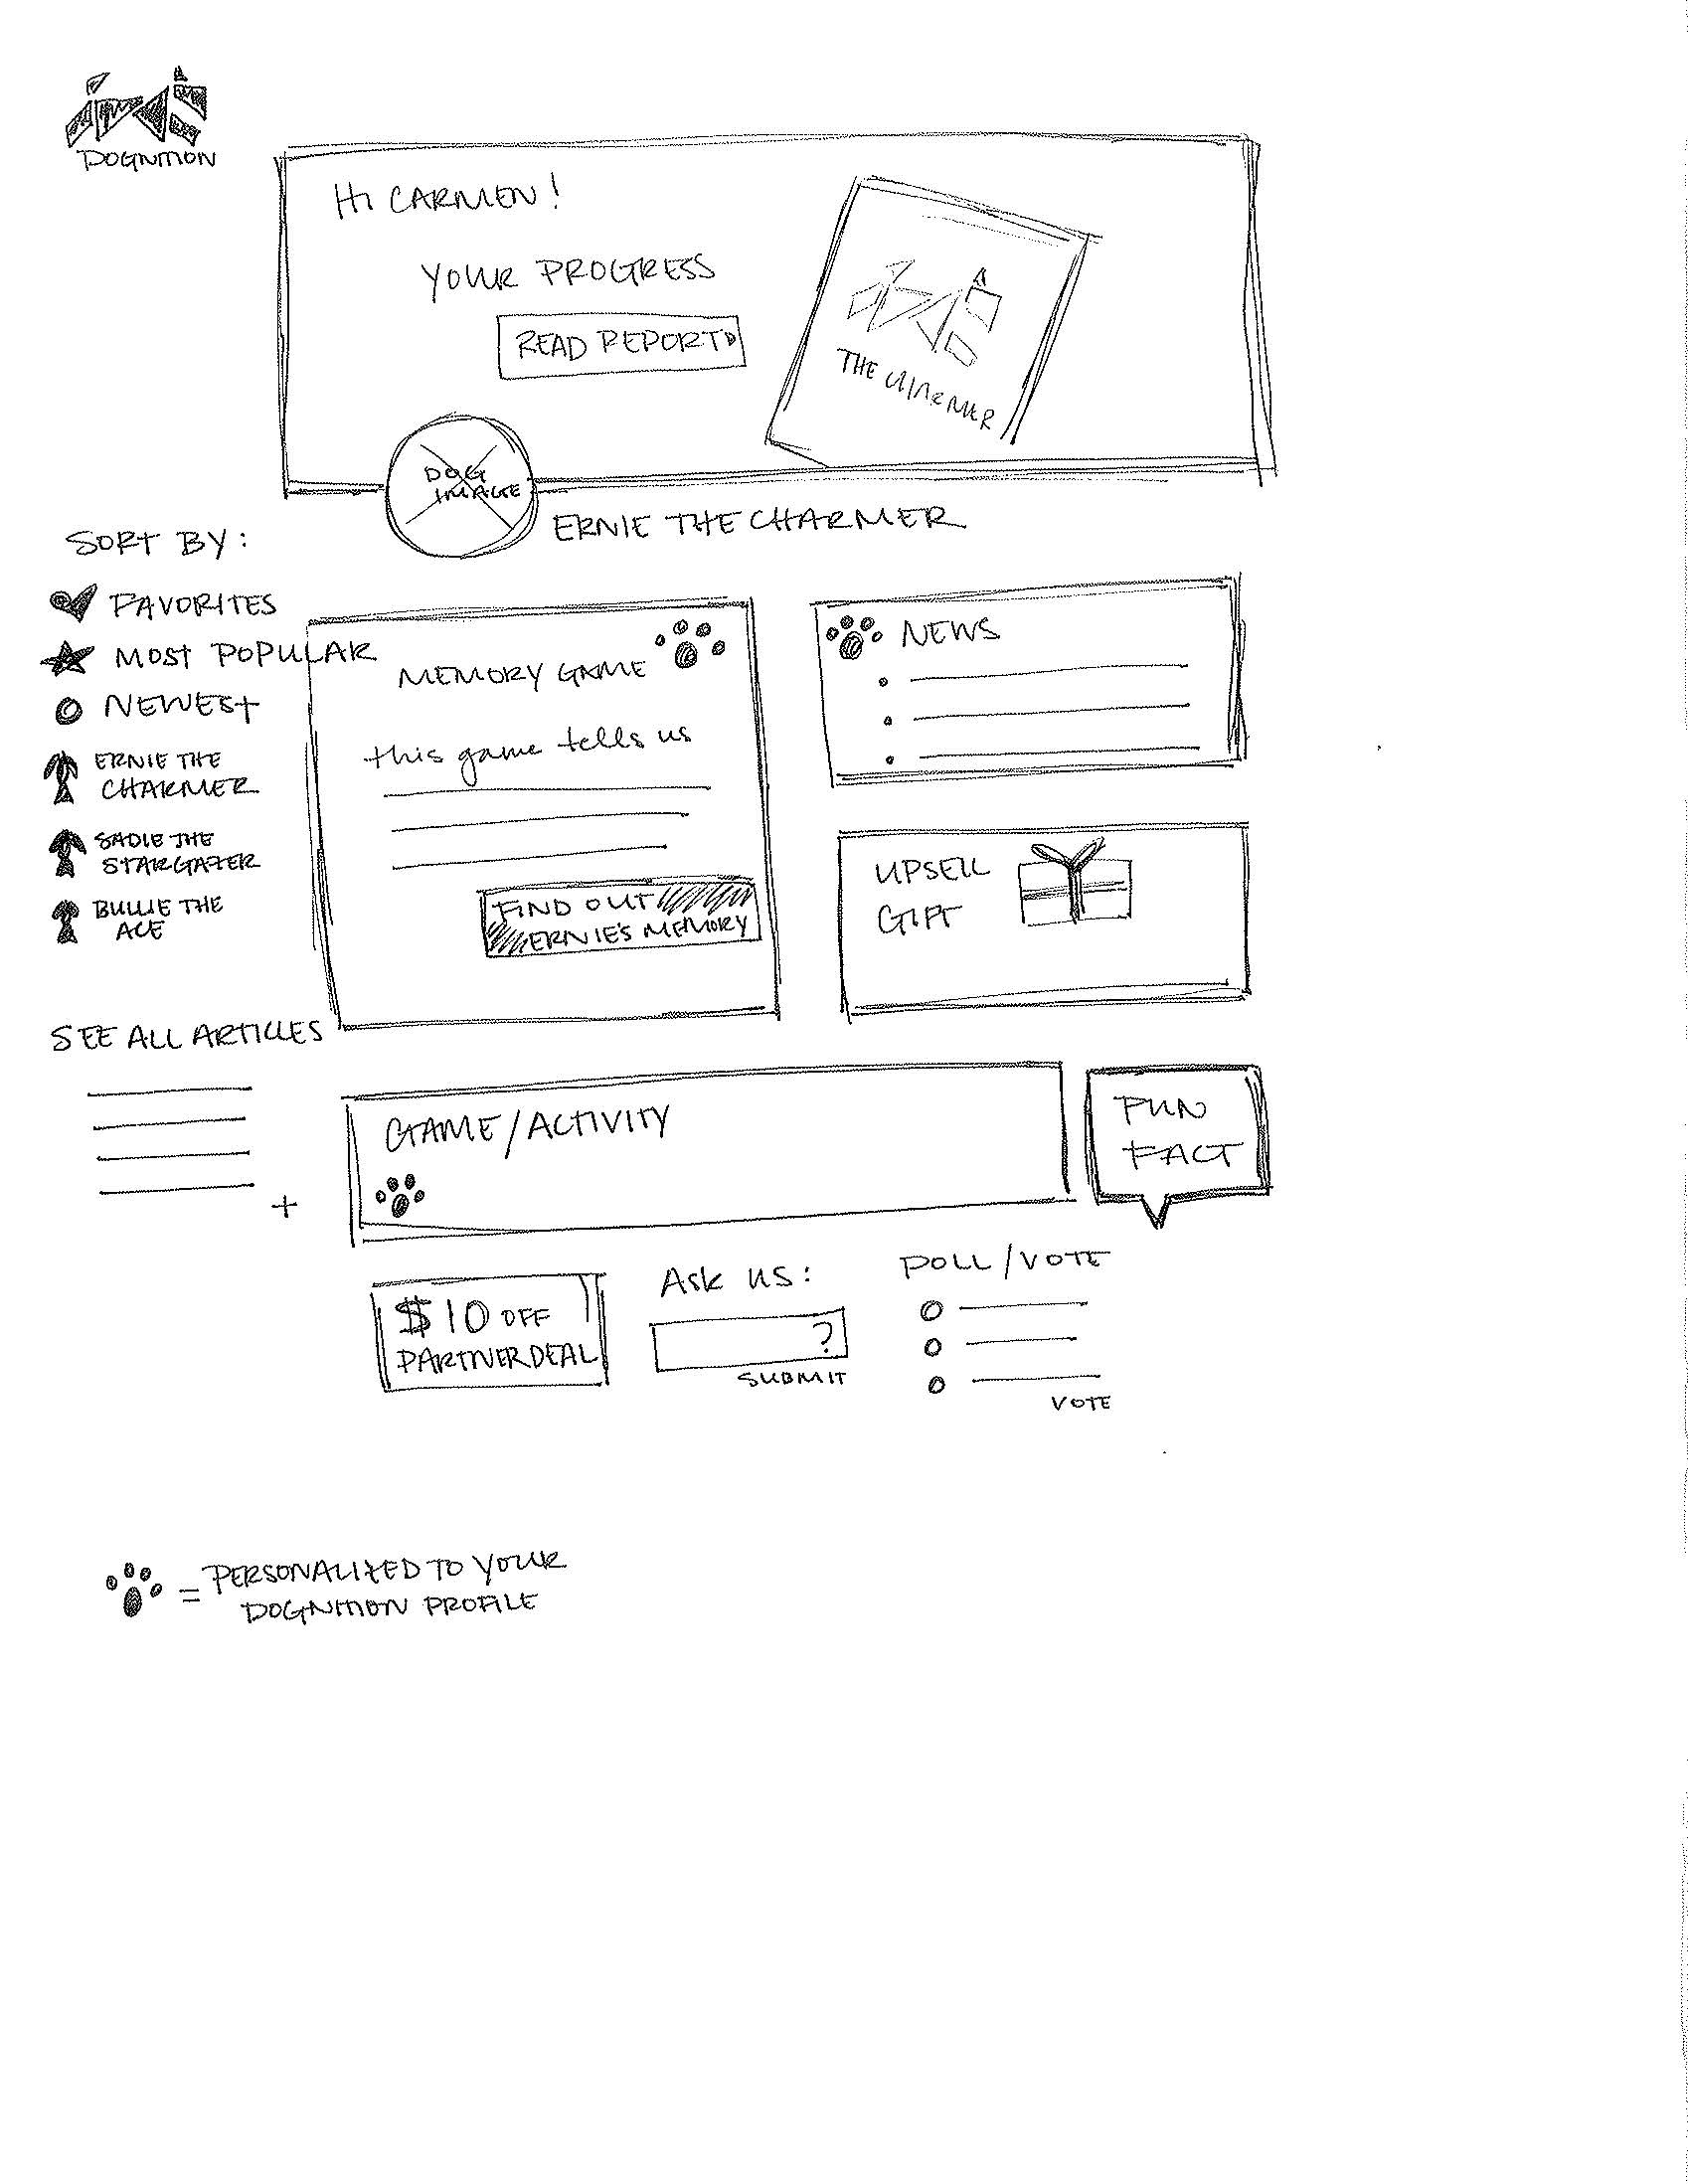 DOGNITION
HI CARMEN!
YOUR PROGRESS
READ REPORT
THE CHARMER
DOG
IMAGE
ERNIE THE CHARMER
SORT BY:
FAVORITES
MOST POPULAR
NEWEST
ERNIE THE
CHARMER
SADIE THE
STARGAZER
BULLIE THE
ACE
SEE ALL ARTICLES
+
MEMORY GAME
this game tells us
FIND OUT
ERNIE'S MEMORY
NEWS
UPSELL
GIFT
GAME/ACTIVITY
FUN
FACT
$10 OFF
PARTNER DEAL
Ask us:
?
SUBMIT
POLL/VOTE
VOTE
= PERSONALIZED TO YOUR
DOGNITION PROFILE